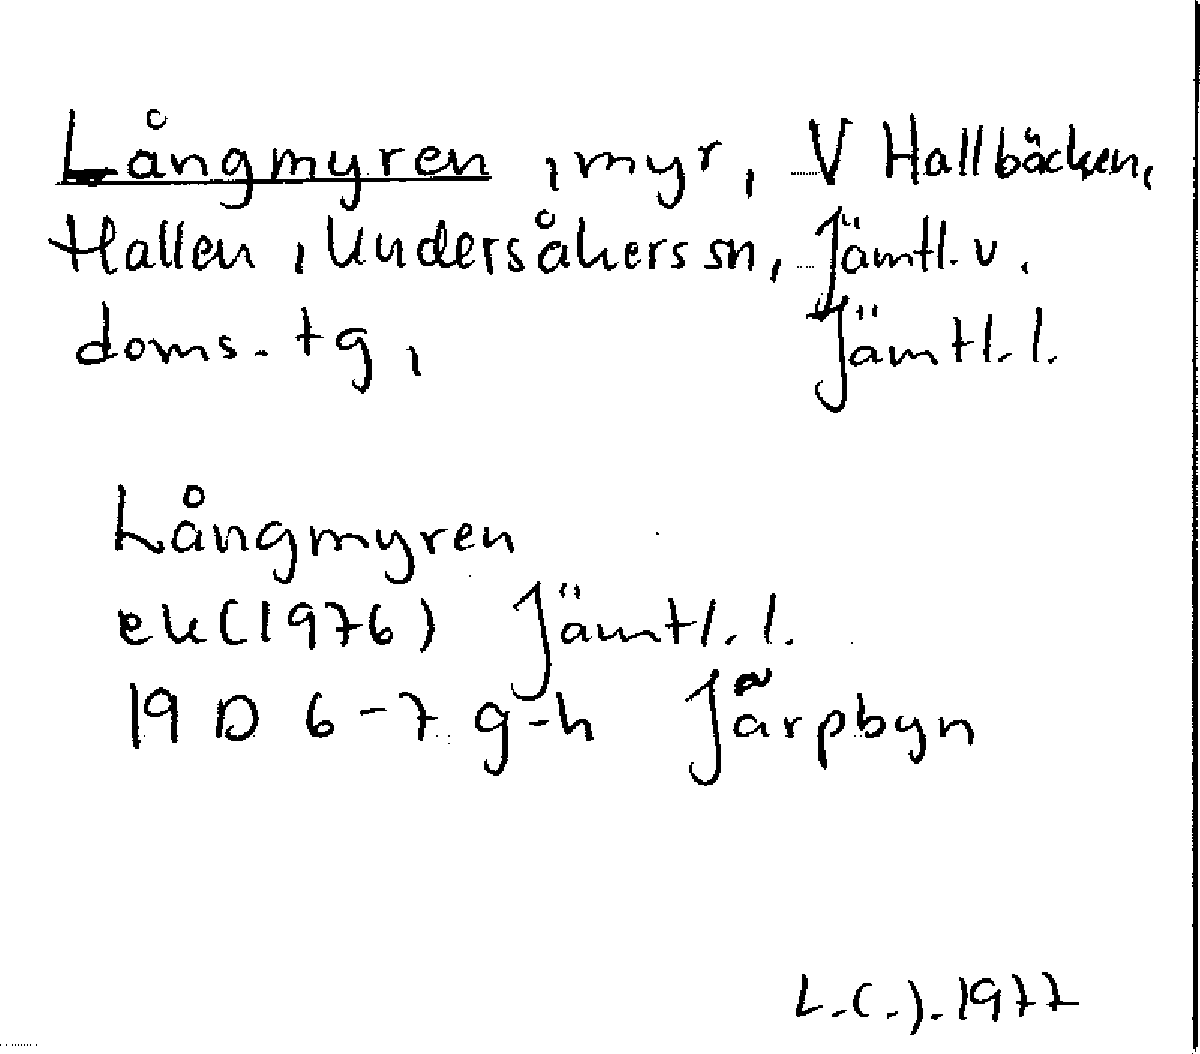 Långmyren, myr, V Hallbäcken,
Hallen, Undersåkers sn, Jämtl. v.
doms. tg, Jämtl. l.
Långmyren
ek (1976) Jämtl. l.
19 D 6-7 g-h Järpbyn
L.(.). 1977